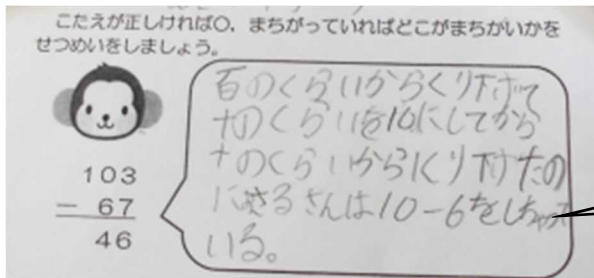 こたえが正しければ○，まちがっていればどこがまちがいかを
せつめいをしましょう。
百のくらいからくり下げて
十のくらいを10にしてから
十のくらいから1くり下げたの
にさるさんは10-6をしちゃって
いる。
103
- 67
46